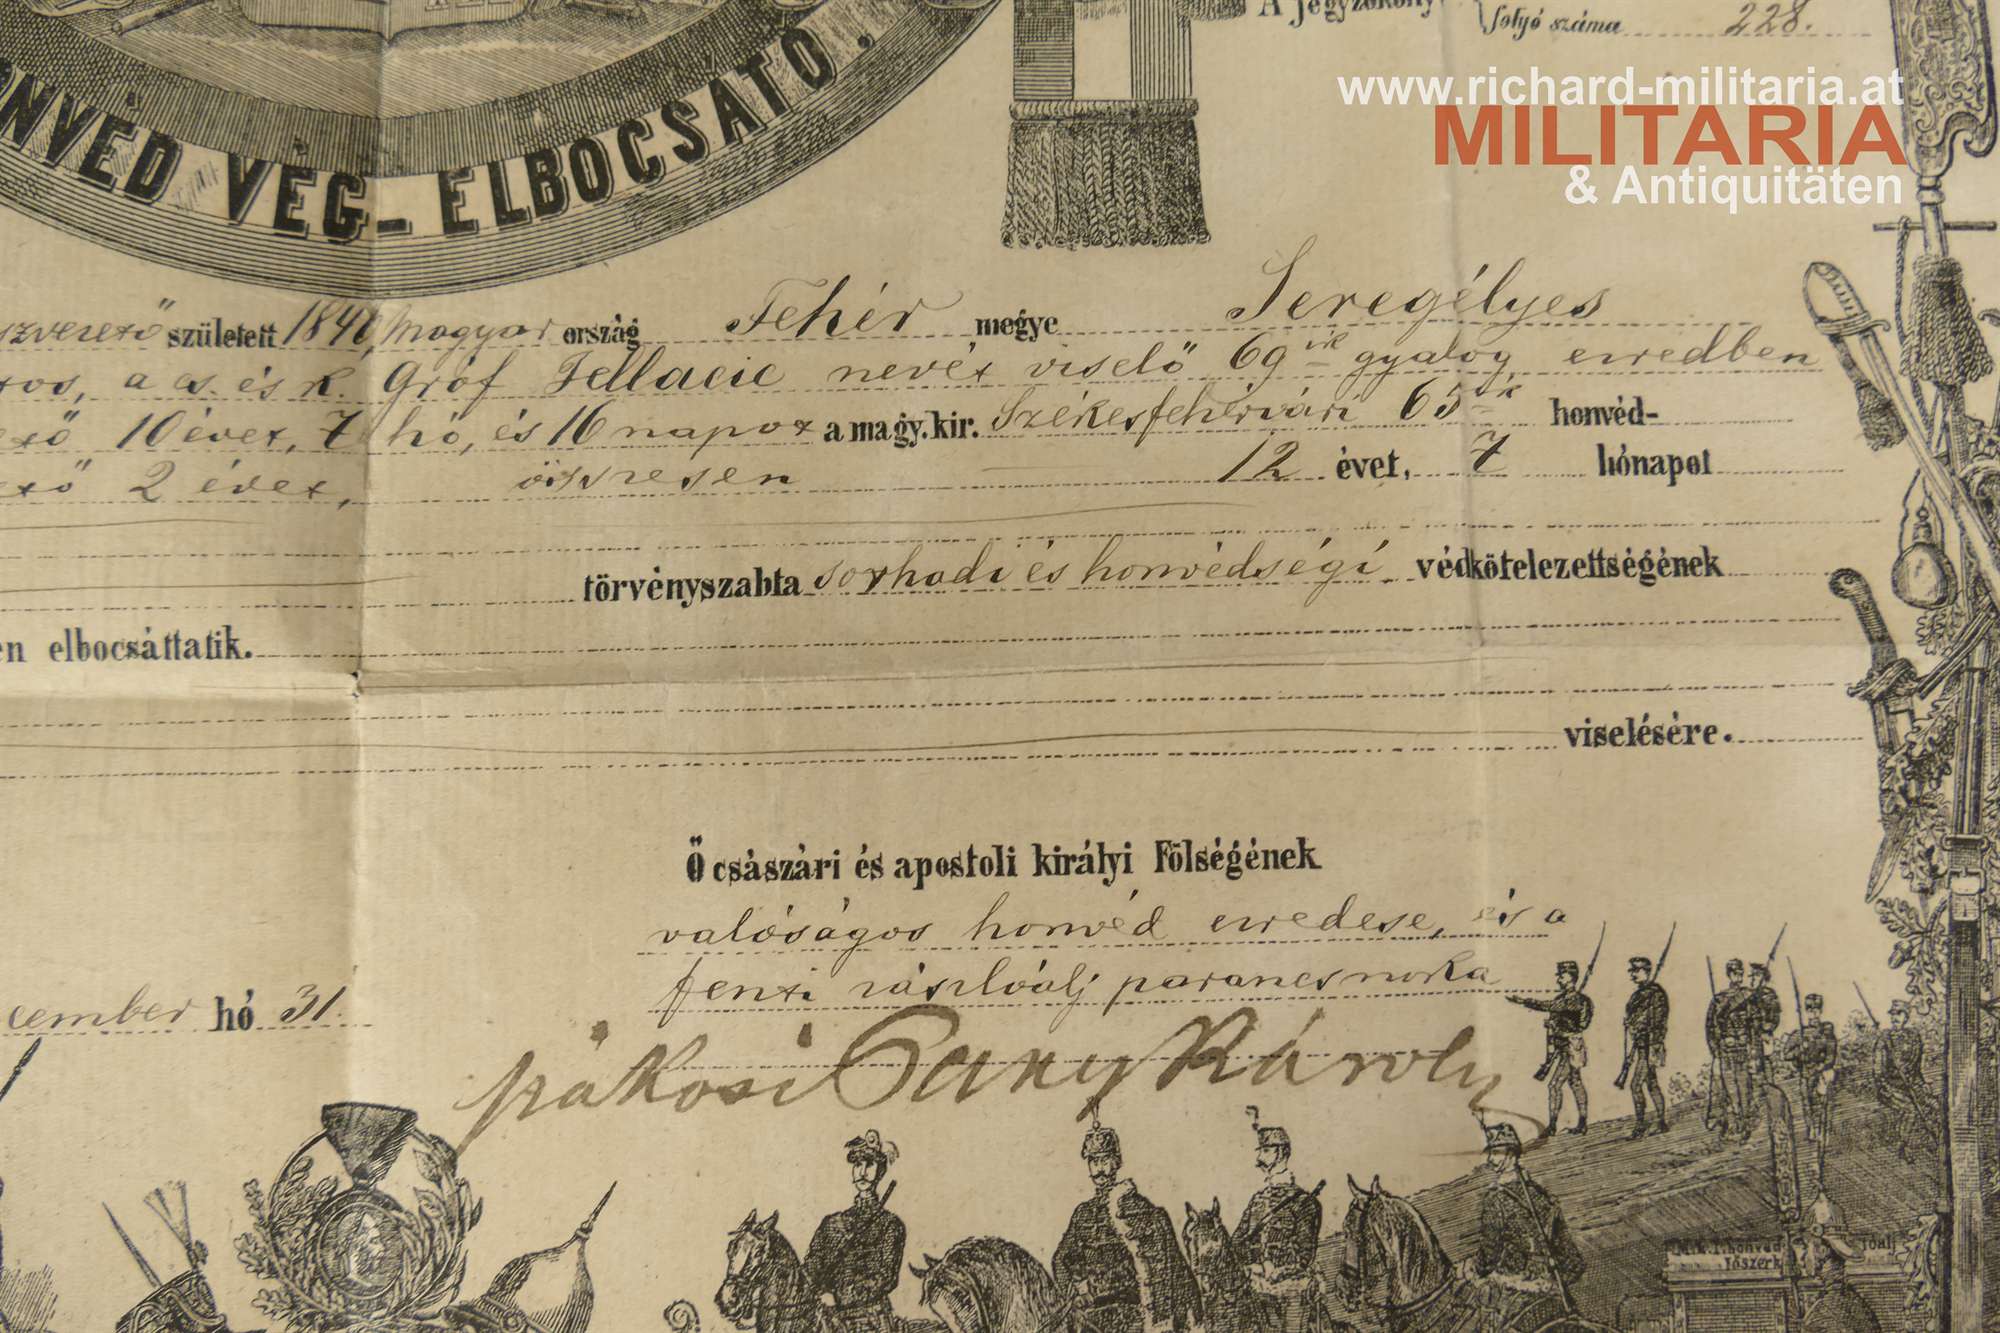 A Jegyzőköny
folyó száma 228.
www.richard-militaria.at
MILITARIA
& Antiquitäten
NVÉD VÉG-ELBOCSÁTÓ.
született 1840, Magyar ország Fehér megye Seregélyes
ros, a cs. és k. Gróf Jellacic nevét viselő 69ik gyalog ezredben
10 évet, 7 hó, és 16 napot a magy. kir. Székesfehérvári 65ik honvéd-
2 évet, összesen 12 évet, 7 hónapot
törvényszabta sorhadi és honvédségi védkötelezettségének
en elbocsáttatik.
viselésére.
Ő császári és apostoli királyi Fölségének
valóságos honvéd ezredese, és a
fenti zászlóalj parancsnoka
cember hó 31.
rákosi Károly
M.k. 1. honvéd
főszerk